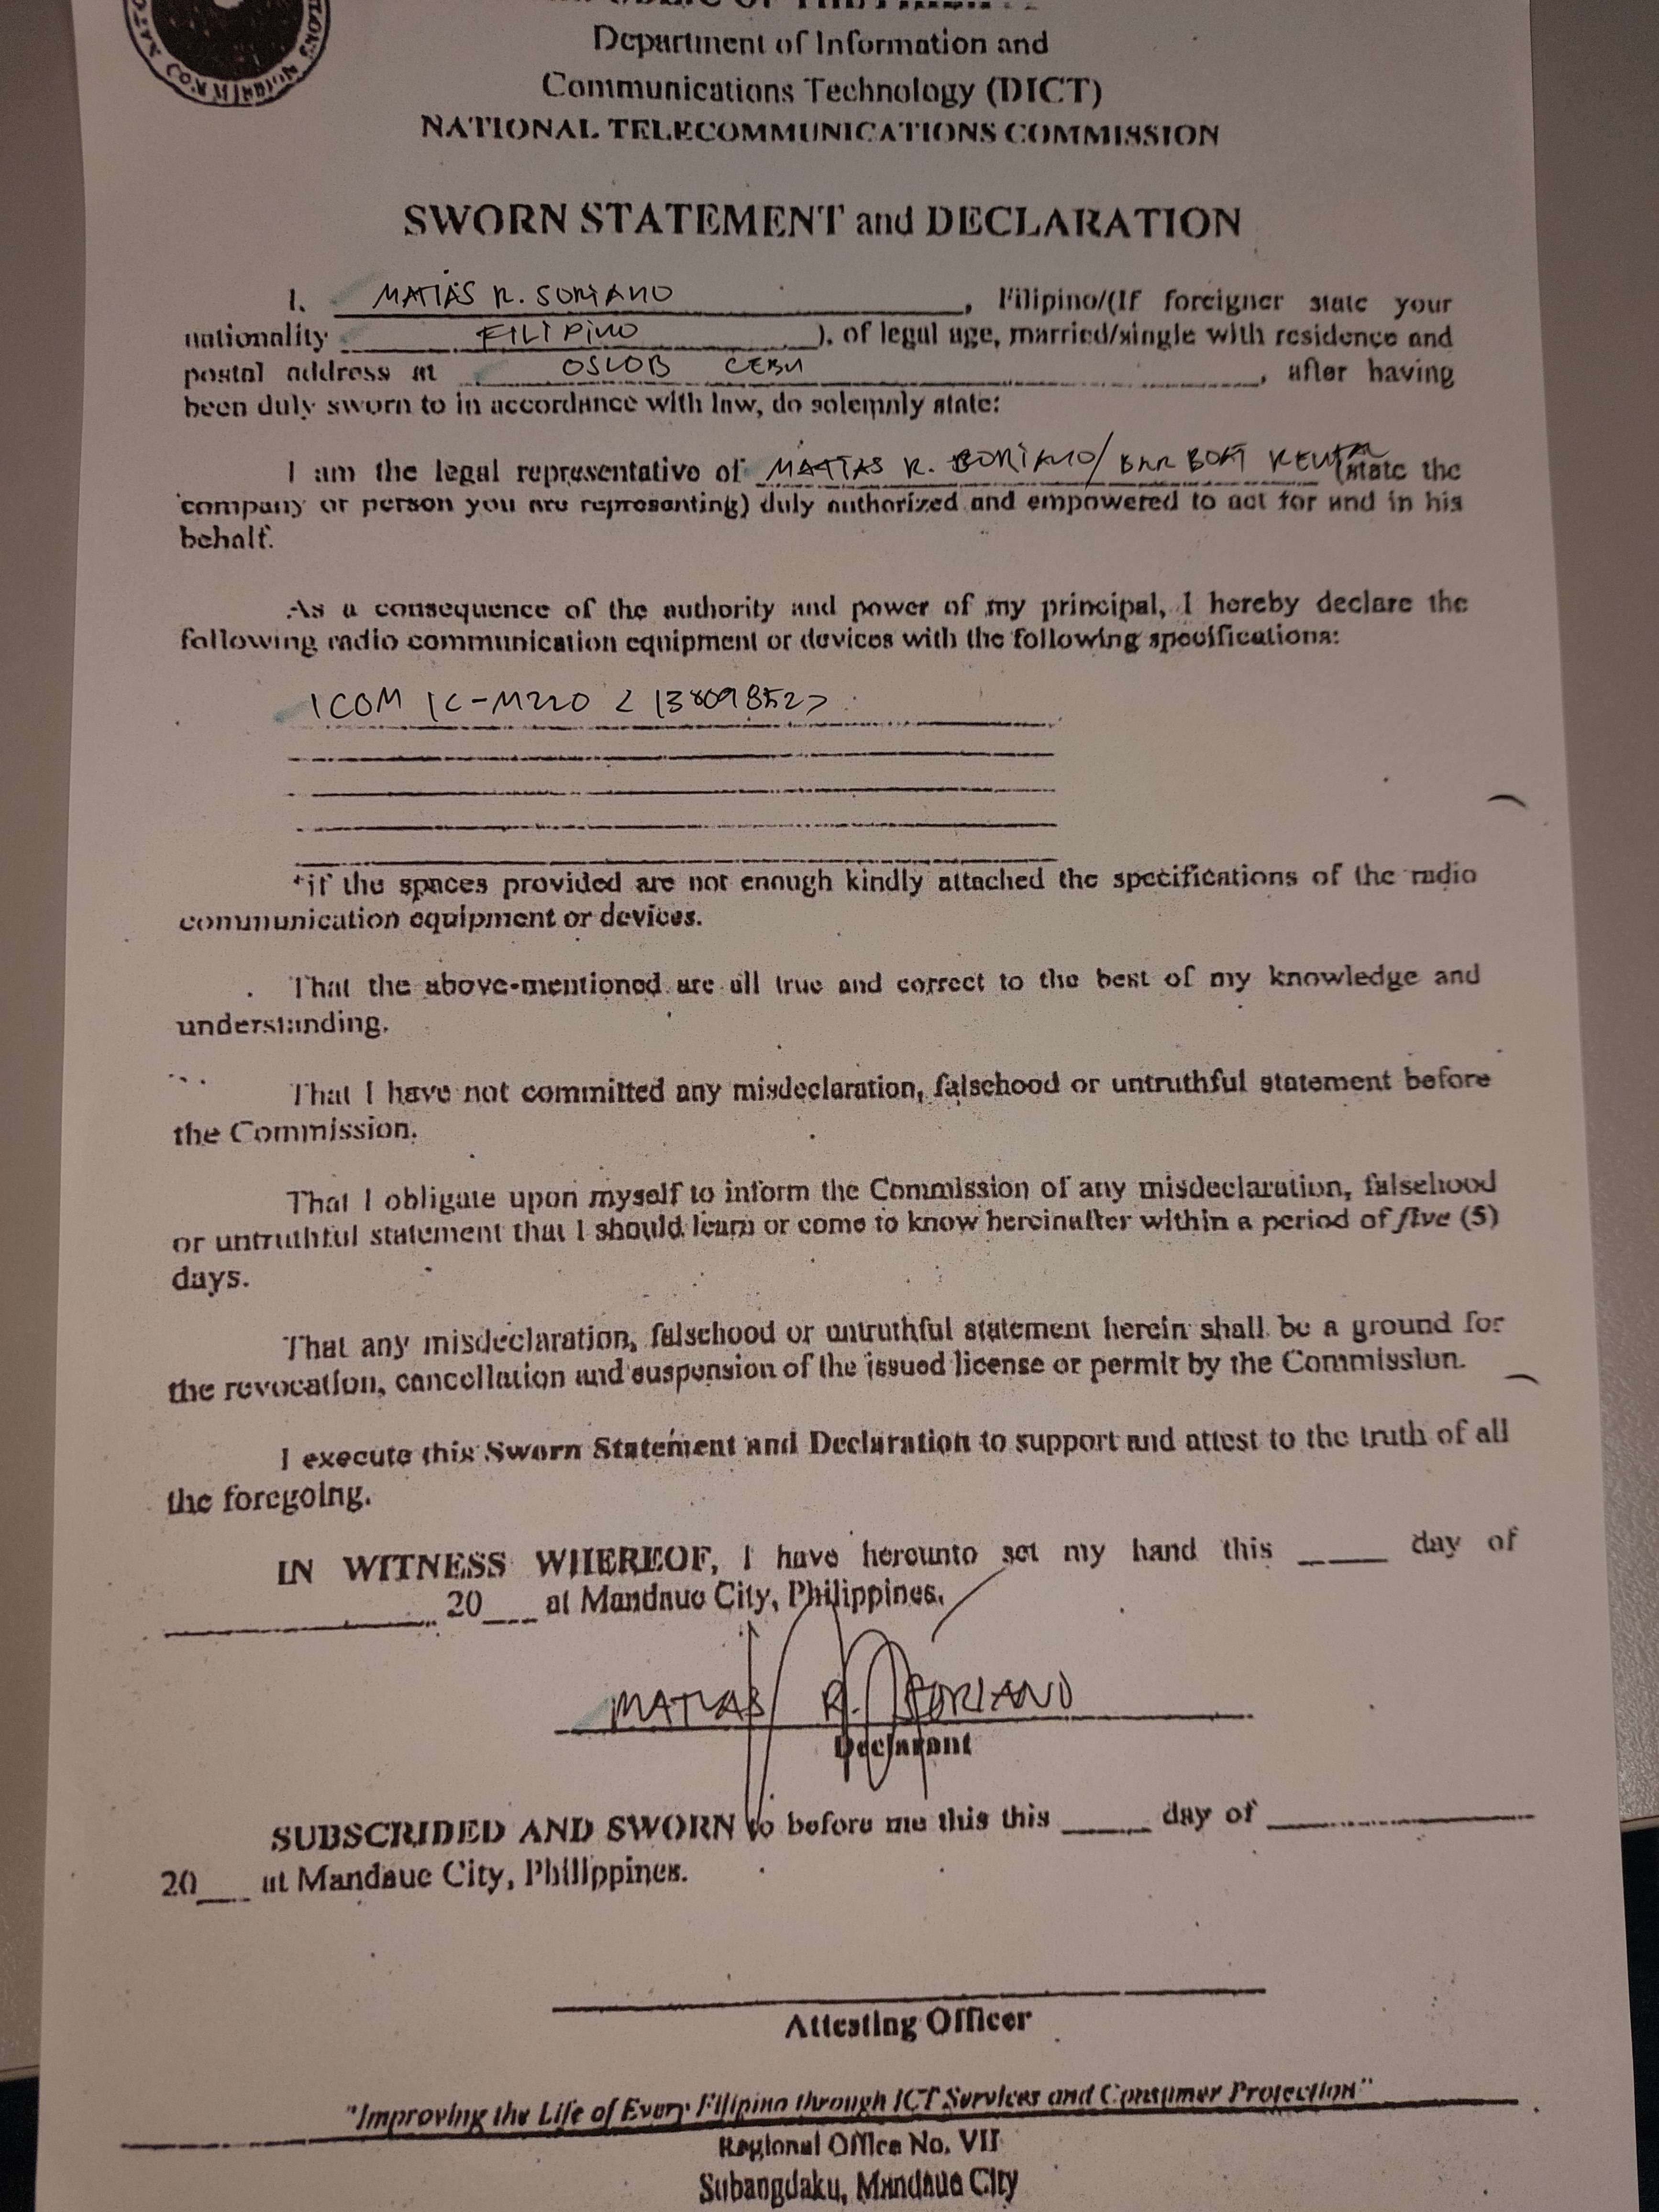 COMMISSION
Department of Information and
Communications Technology (DICT)
NATIONAL TELECOMMUNICATIONS COMMISSION
SWORN STATEMENT and DECLARATION
I, MATIAS R. SORIANO, Filipino/(If foreigner state your
nationality FILIPINO ), of legal age, married/single with residence and
postal address at OSLOB CEBU, after having
been duly sworn to in accordance with law, do solemnly state:
I am the legal representative of MATIAS R. SORIANO/ BOAT RENTAL (state the
company or person you are representing) duly authorized and empowered to act for and in his
behalf.
As a consequence of the authority and power of my principal, I hereby declare the
following radio communication equipment or devices with the following specifications:
ICOM IC-M220 < 13809852>
*if the spaces provided are not enough kindly attached the specifications of the radio
communication equipment or devices.
That the above-mentioned are all true and correct to the best of my knowledge and
understanding.
That I have not committed any misdeclaration, falsehood or untruthful statement before
the Commission.
That I obligate upon myself to inform the Commission of any misdeclaration, falsehood
or untruthful statement that I should learn or come to know hereinafter within a period of five (5)
days.
That any misdeclaration, falsehood or untruthful statement herein shall be a ground for
the revocation, cancellation and suspension of the issued license or permit by the Commission.
I execute this Sworn Statement and Declaration to support and attest to the truth of all
the foregoing.
IN WITNESS WHEREOF, I have hereunto set my hand this ____ day of
____ 20___ at Mandaue City, Philippines.
MATIAS R. SORIANO
Declarant
SUBSCRIBED AND SWORN to before me this this ____ day of ____
20___ at Mandaue City, Philippines.
Attesting Officer
"Improving the Life of Every Filipino through ICT Services and Consumer Protection"
Regional Office No. VII
Subangdaku, Mandaue City